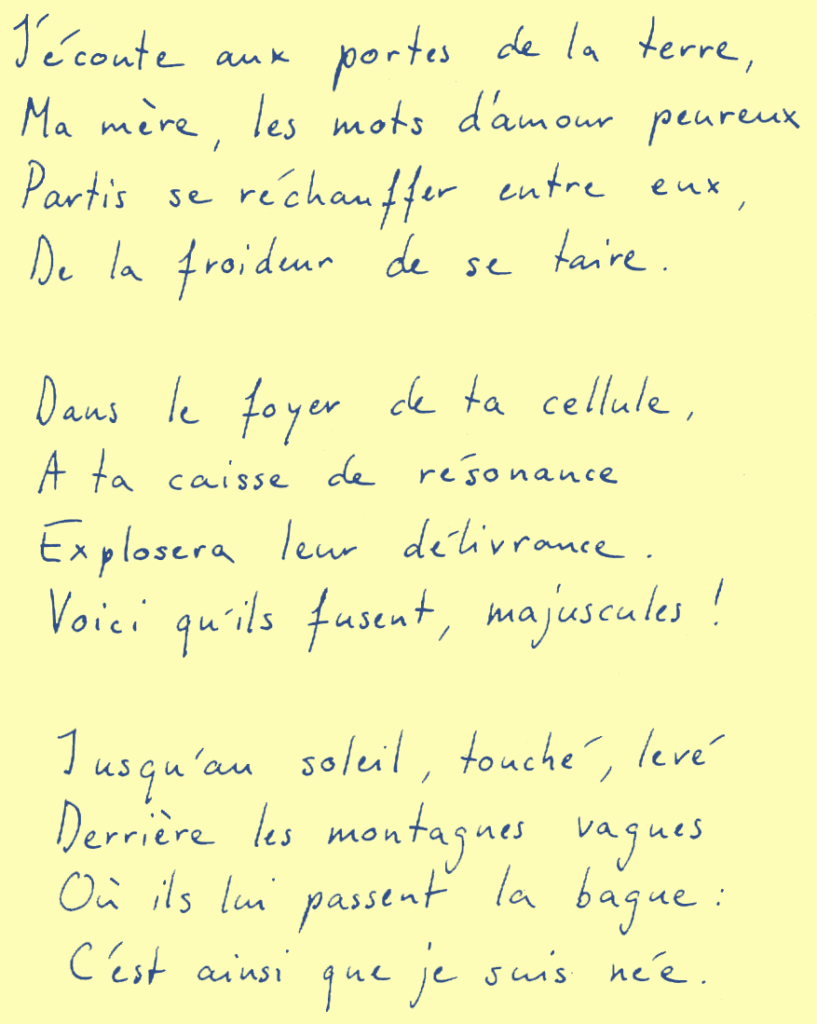 J'écoute aux portes de la terre,
Ma mère, les mots d'amour peureux
Partis se réchauffer entre eux,
De la froideur de se taire.
Dans le foyer de ta cellule,
A ta caisse de résonance
Explosera leur délivrance.
Voici qu'ils fusent, majuscules !
Jusqu'au soleil, touché, levé
Derrière les montagnes vagues
Où ils lui passent la bague :
C'est ainsi que je suis née.